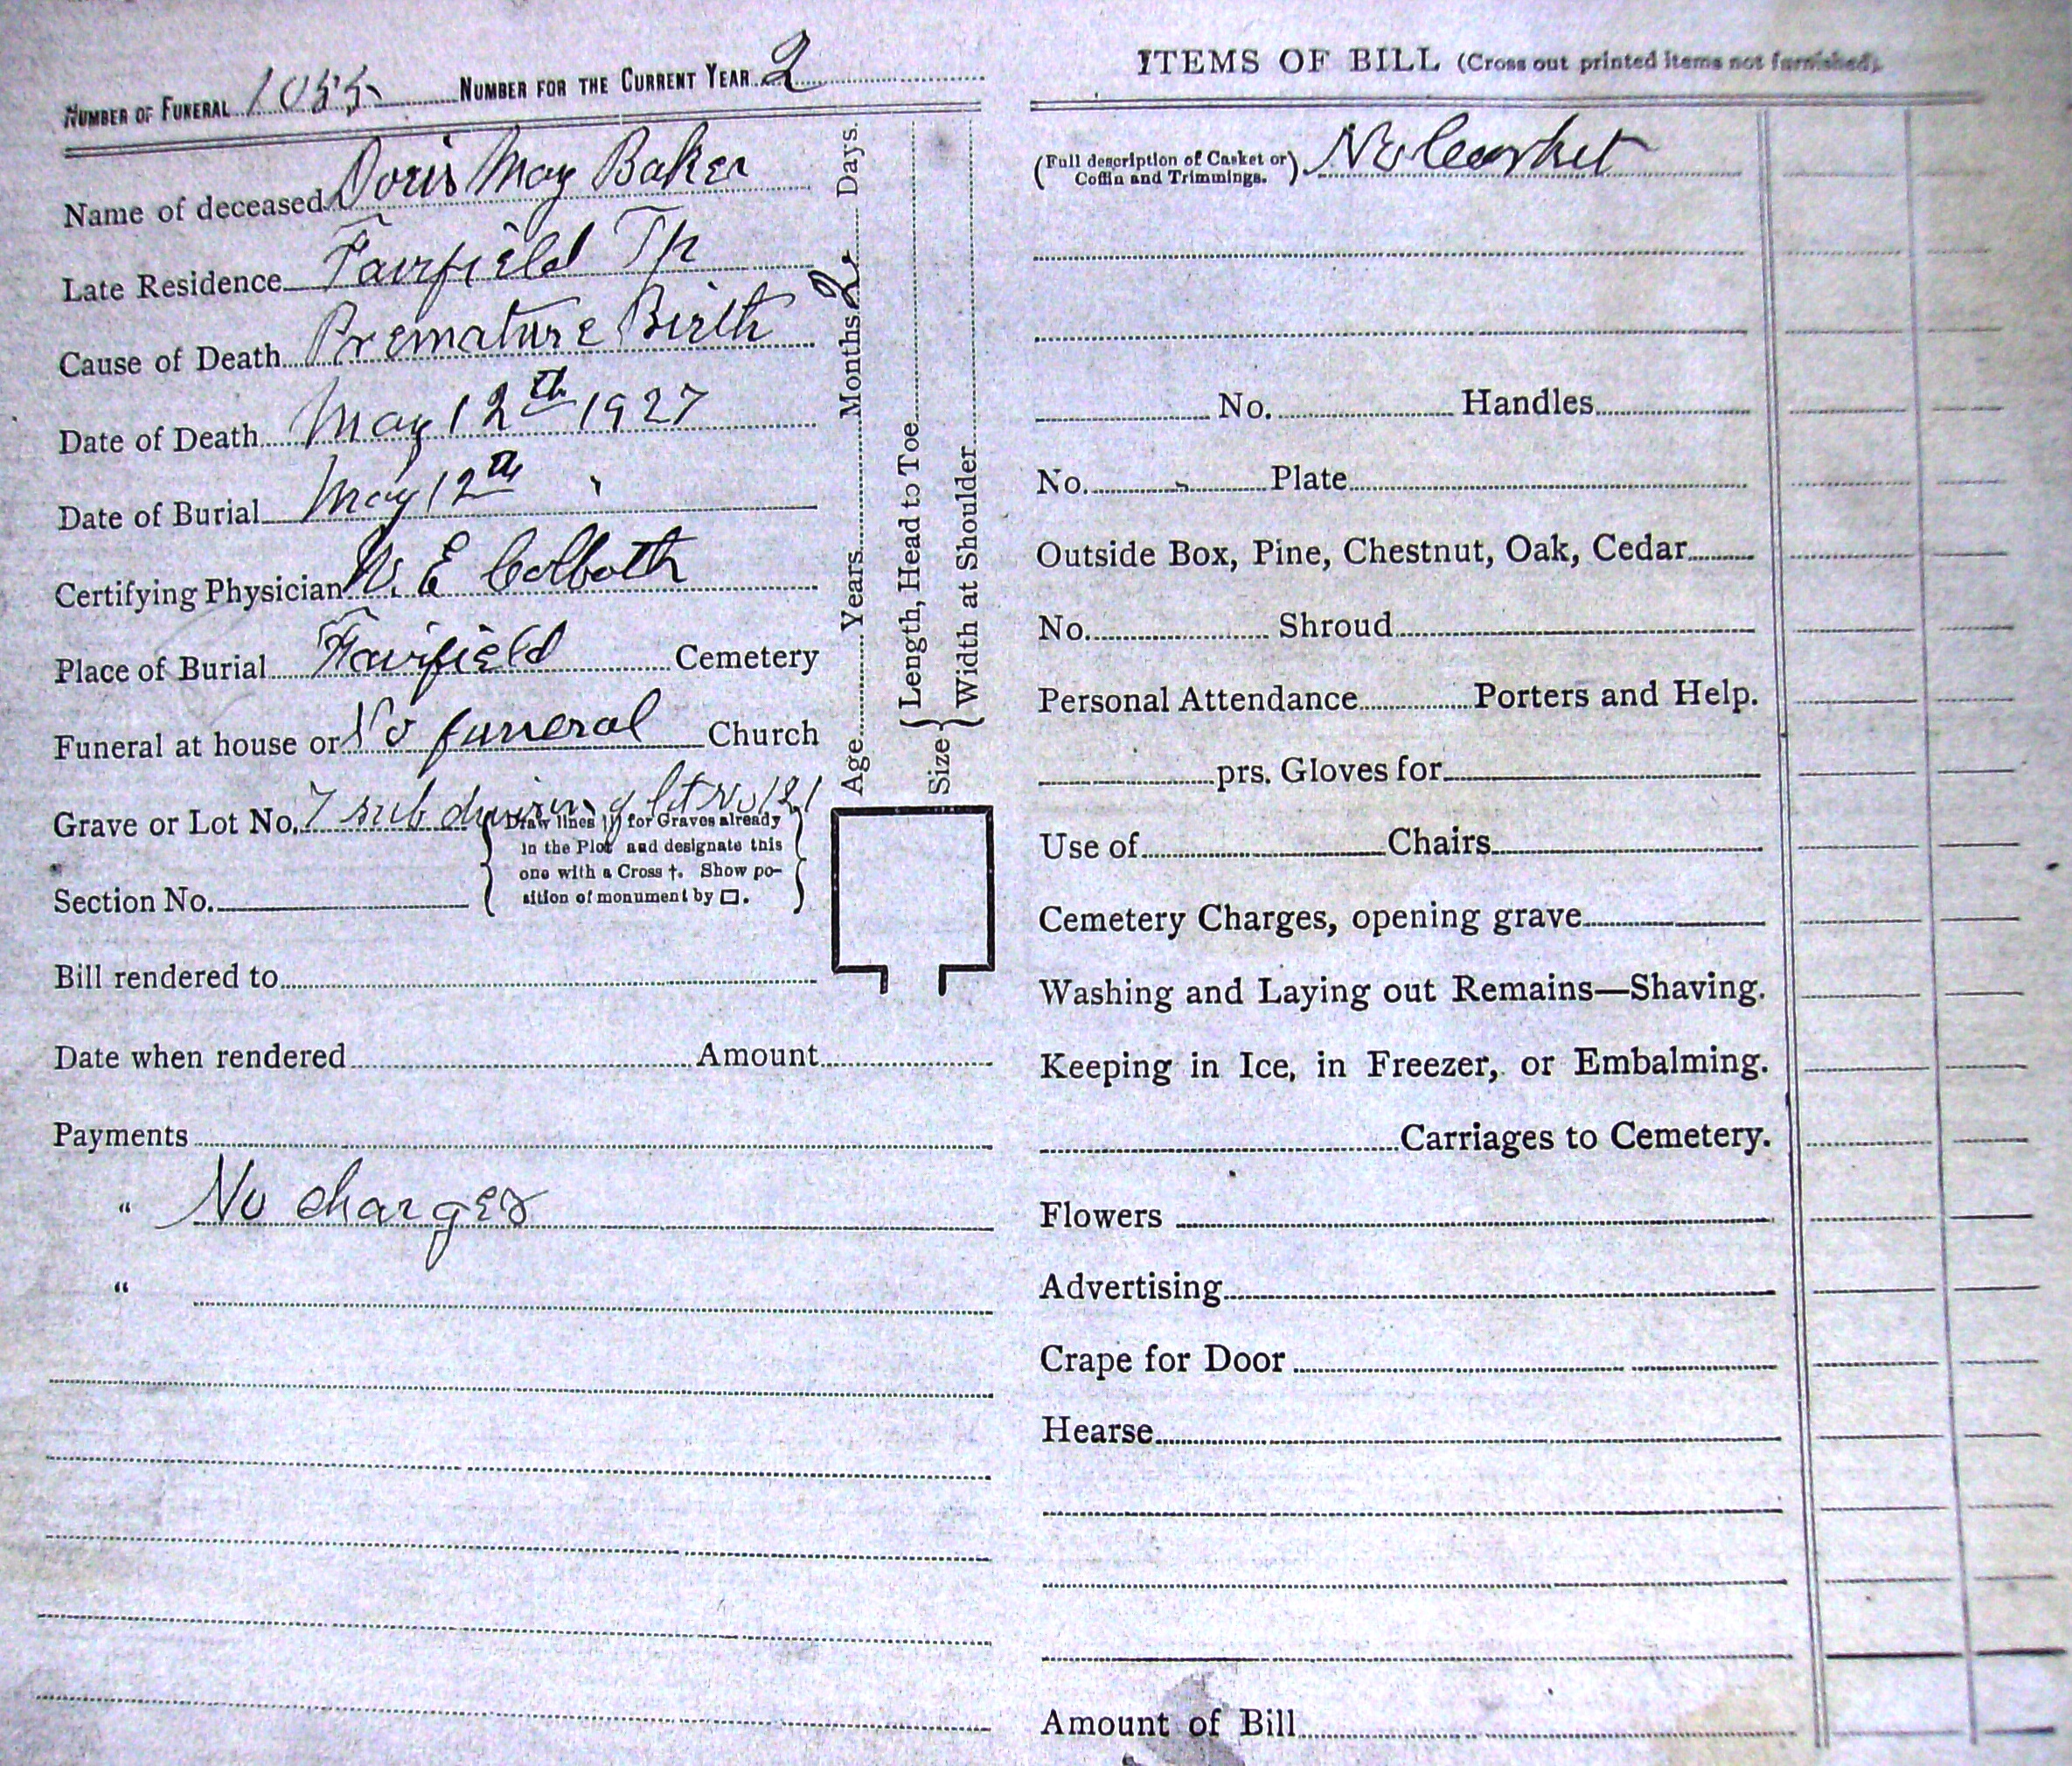 NUMBER OF FUNERAL 1055 NUMBER FOR THE CURRENT YEAR 2
Name of deceased Doris May Baker
Late Residence Fairfield Tp
Cause of Death Premature Birth
Date of Death May 12th 1927
Date of Burial May 12th "
Certifying Physician W. E Colboth
Place of Burial Fairfield Cemetery
Funeral at house or No funeral Church
Grave or Lot No. 7 sub division of lot No 121
(Draw lines || for Graves already
in the Plot and designate this
one with a Cross †. Show po-
sition of monument by □.)
Section No.
Bill rendered to
Date when rendered Amount
Payments
" No charges
"
Age Years Months 2 Days.
Size { Length, Head to Toe
Width at Shoulder
ITEMS OF BILL (Cross out printed items not furnished).
(Full description of Casket or
Coffin and Trimmings.) No Casket
No. Handles
No. Plate
Outside Box, Pine, Chestnut, Oak, Cedar
No. Shroud
Personal Attendance Porters and Help.
prs. Gloves for
Use of Chairs
Cemetery Charges, opening grave
Washing and Laying out Remains—Shaving.
Keeping in Ice, in Freezer, or Embalming.
Carriages to Cemetery.
Flowers
Advertising
Crape for Door
Hearse
Amount of Bill